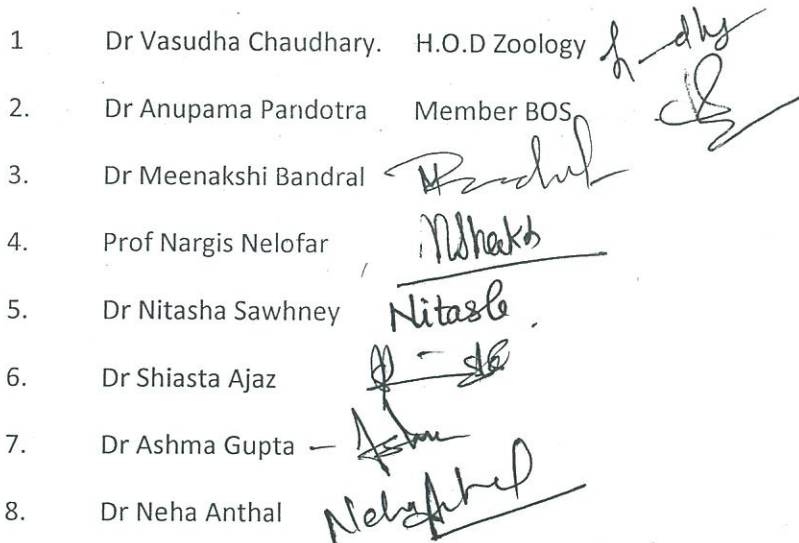 1 Dr Vasudha Chaudhary. H.O.D Zoology
2. Dr Anupama Pandotra Member BOS
3. Dr Meenakshi Bandral
4. Prof Nargis Nelofar
5. Dr Nitasha Sawhney Nitasha
6. Dr Shiasta Ajaz
7. Dr Ashma Gupta –
8. Dr Neha Anthal Neha Anthal